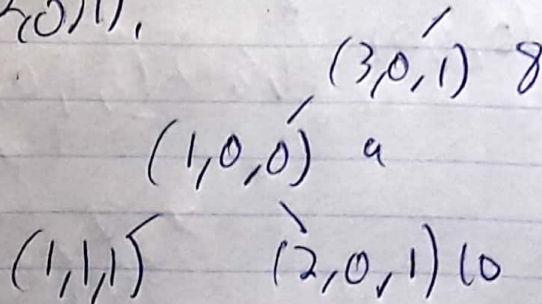 (3,0,1) 8
(1,0,0) a
(1,1,1) (2,0,1) 10